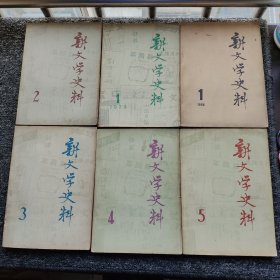 新文学史料
2
新文学史料
1
新文学史料
1
新文学史料
3
新文学史料
4
新文学史料
5